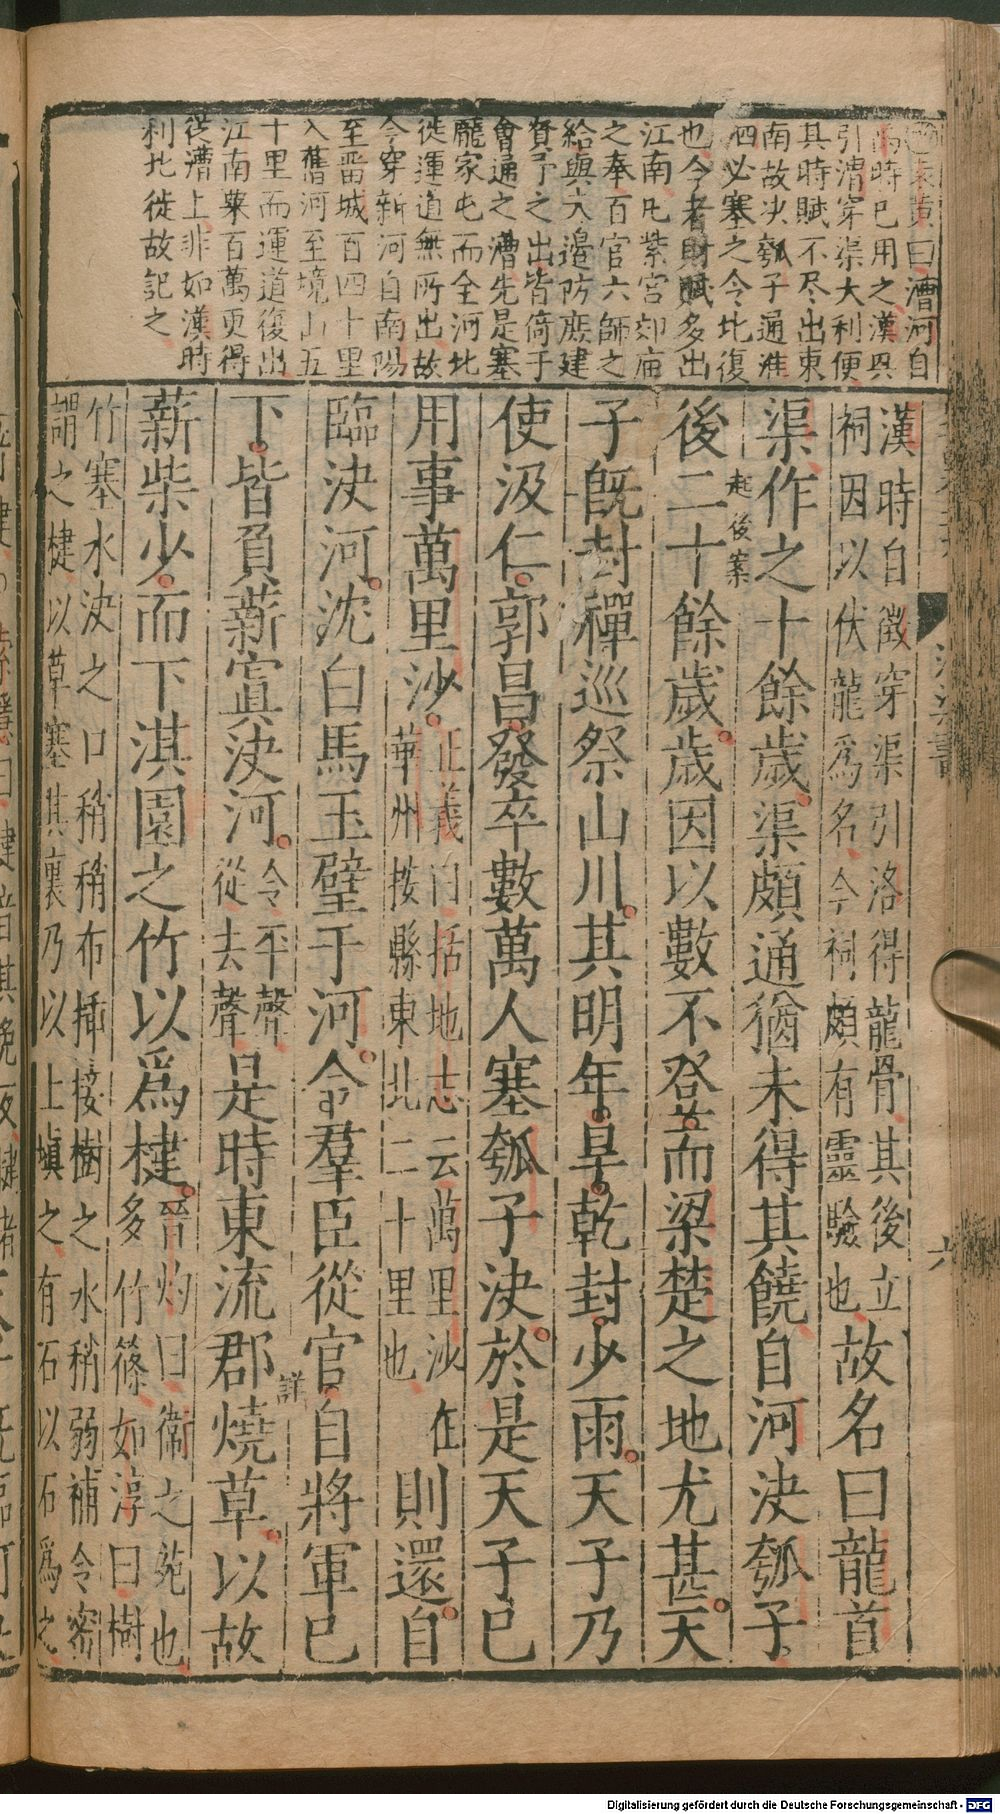 袁黄曰漕河自
時已用之漢興
引渭穿渠大利便
其時賦不尽出東
南故决瓠子通淮
泗必塞之今北復
也今者財賦多出
江南凡紫宮郊庙
之奉百官六師之
給與夫邉防廒建
賚予之出皆倚于
會通之漕先是塞
龎家屯而全河北
徙運道無所出故
今穿新河自南陽
至畱城百四十里
入舊河至境山五
十里而運道復出
江南粟百萬更得
從漕上非如漢時
利北徙故記之
漢時自徵穿渠引洛得龍骨其後立
祠因以伏龍爲名今祠頗有靈驗也故名曰龍首
渠作之十餘歲渠頗通猶未得其饒自河決瓠子
起後案
後二十餘歲歲因以數不登而梁楚之地尤甚天
子旣封禪巡祭山川其明年旱乾封少雨天子乃
使汲仁郭昌發卒數萬人塞瓠子決於是天子已
用事萬里沙正義曰括地志云萬里沙在
華州按縣東北二十里也則還自
臨決河沈白馬玉璧于河令羣臣從官自將軍已
詳
下皆負薪寘決河令平聲
從去聲是時東流郡燒草以故
薪柴少而下淇園之竹以爲楗晉灼曰衞之苑也
多竹篠如淳曰樹
竹塞水決之口稍稍布揷接樹之水稍弱補令密
謂之楗以草塞其裏乃以土塡之有石以石爲之
河渠書
六
Digitalisierung gefördert durch die Deutsche Forschungsgemeinschaft - DFG